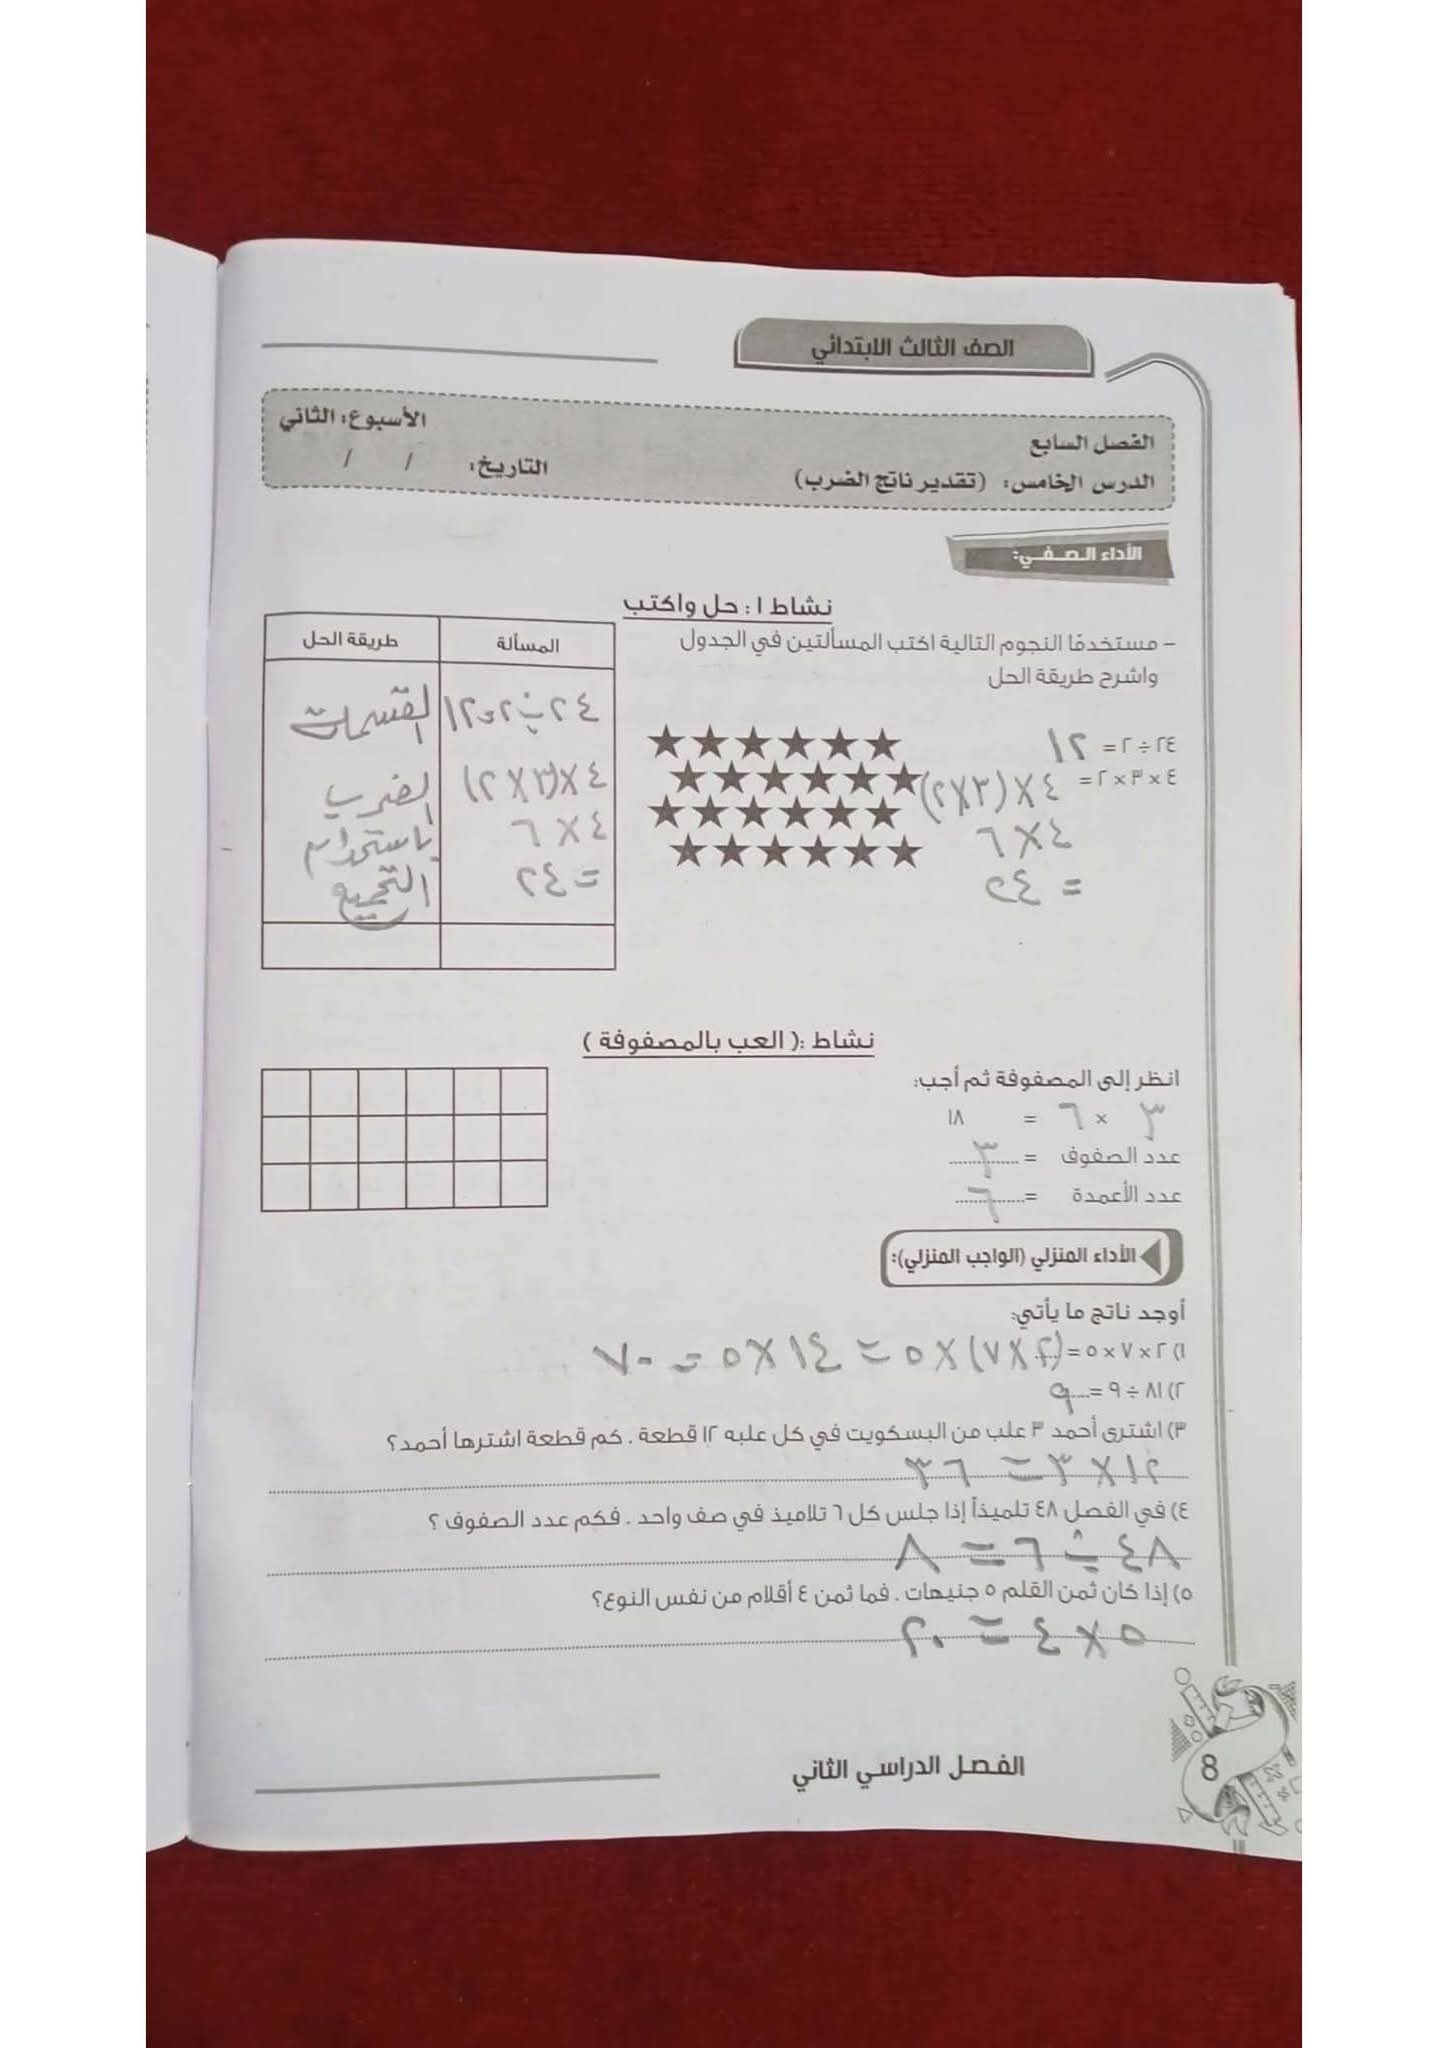 الصف الثالث الابتدائي
الفصل السابع
الأسبوع: الثاني
الدرس الخامس: (تقدير ناتج الضرب)
التاريخ: / /
الأداء الصفي:
نشاط ١: حل واكتب
- مستخدمًا النجوم التالية اكتب المسألتين في الجدول
واشرح طريقة الحل
٢٤ ÷ ٢ = ١٢
٤ × ٣ × ٢ = ٤ × (٣ × ٢)
٤ × ٦
= ٢٤
المسألة
طريقة الحل
٢٤ ÷ ٢ = ١٢
٤ × (٣ × ٢)
الضرب
٤ × ٦
باستخدام
= ٢٤
التجميع
نشاط :( العب بالمصفوفة )
انظر إلى المصفوفة ثم أجب:
٣ × ٦ = ١٨
عدد الصفوف = ٣
عدد الأعمدة = ٦
الأداء المنزلي (الواجب المنزلي):
أوجد ناتج ما يأتي:
١) ٢ × ٧ × ٥ = (٢ × ٧) × ٥ = ١٤ × ٥ = ٧٠
٢) ٨١ ÷ ٩ = ٩
٣) اشترى أحمد ٣ علب من البسكويت في كل علبه ١٢ قطعة . كم قطعة اشترها أحمد؟
١٢ × ٣ = ٣٦
٤) في الفصل ٤٨ تلميذاً إذا جلس كل ٦ تلاميذ في صف واحد . فكم عدد الصفوف ؟
٤٨ ÷ ٦ = ٨
٥) إذا كان ثمن القلم ٥ جنيهات . فما ثمن ٤ أقلام من نفس النوع؟
٥ × ٤ = ٢٠
الفصل الدراسي الثاني
8